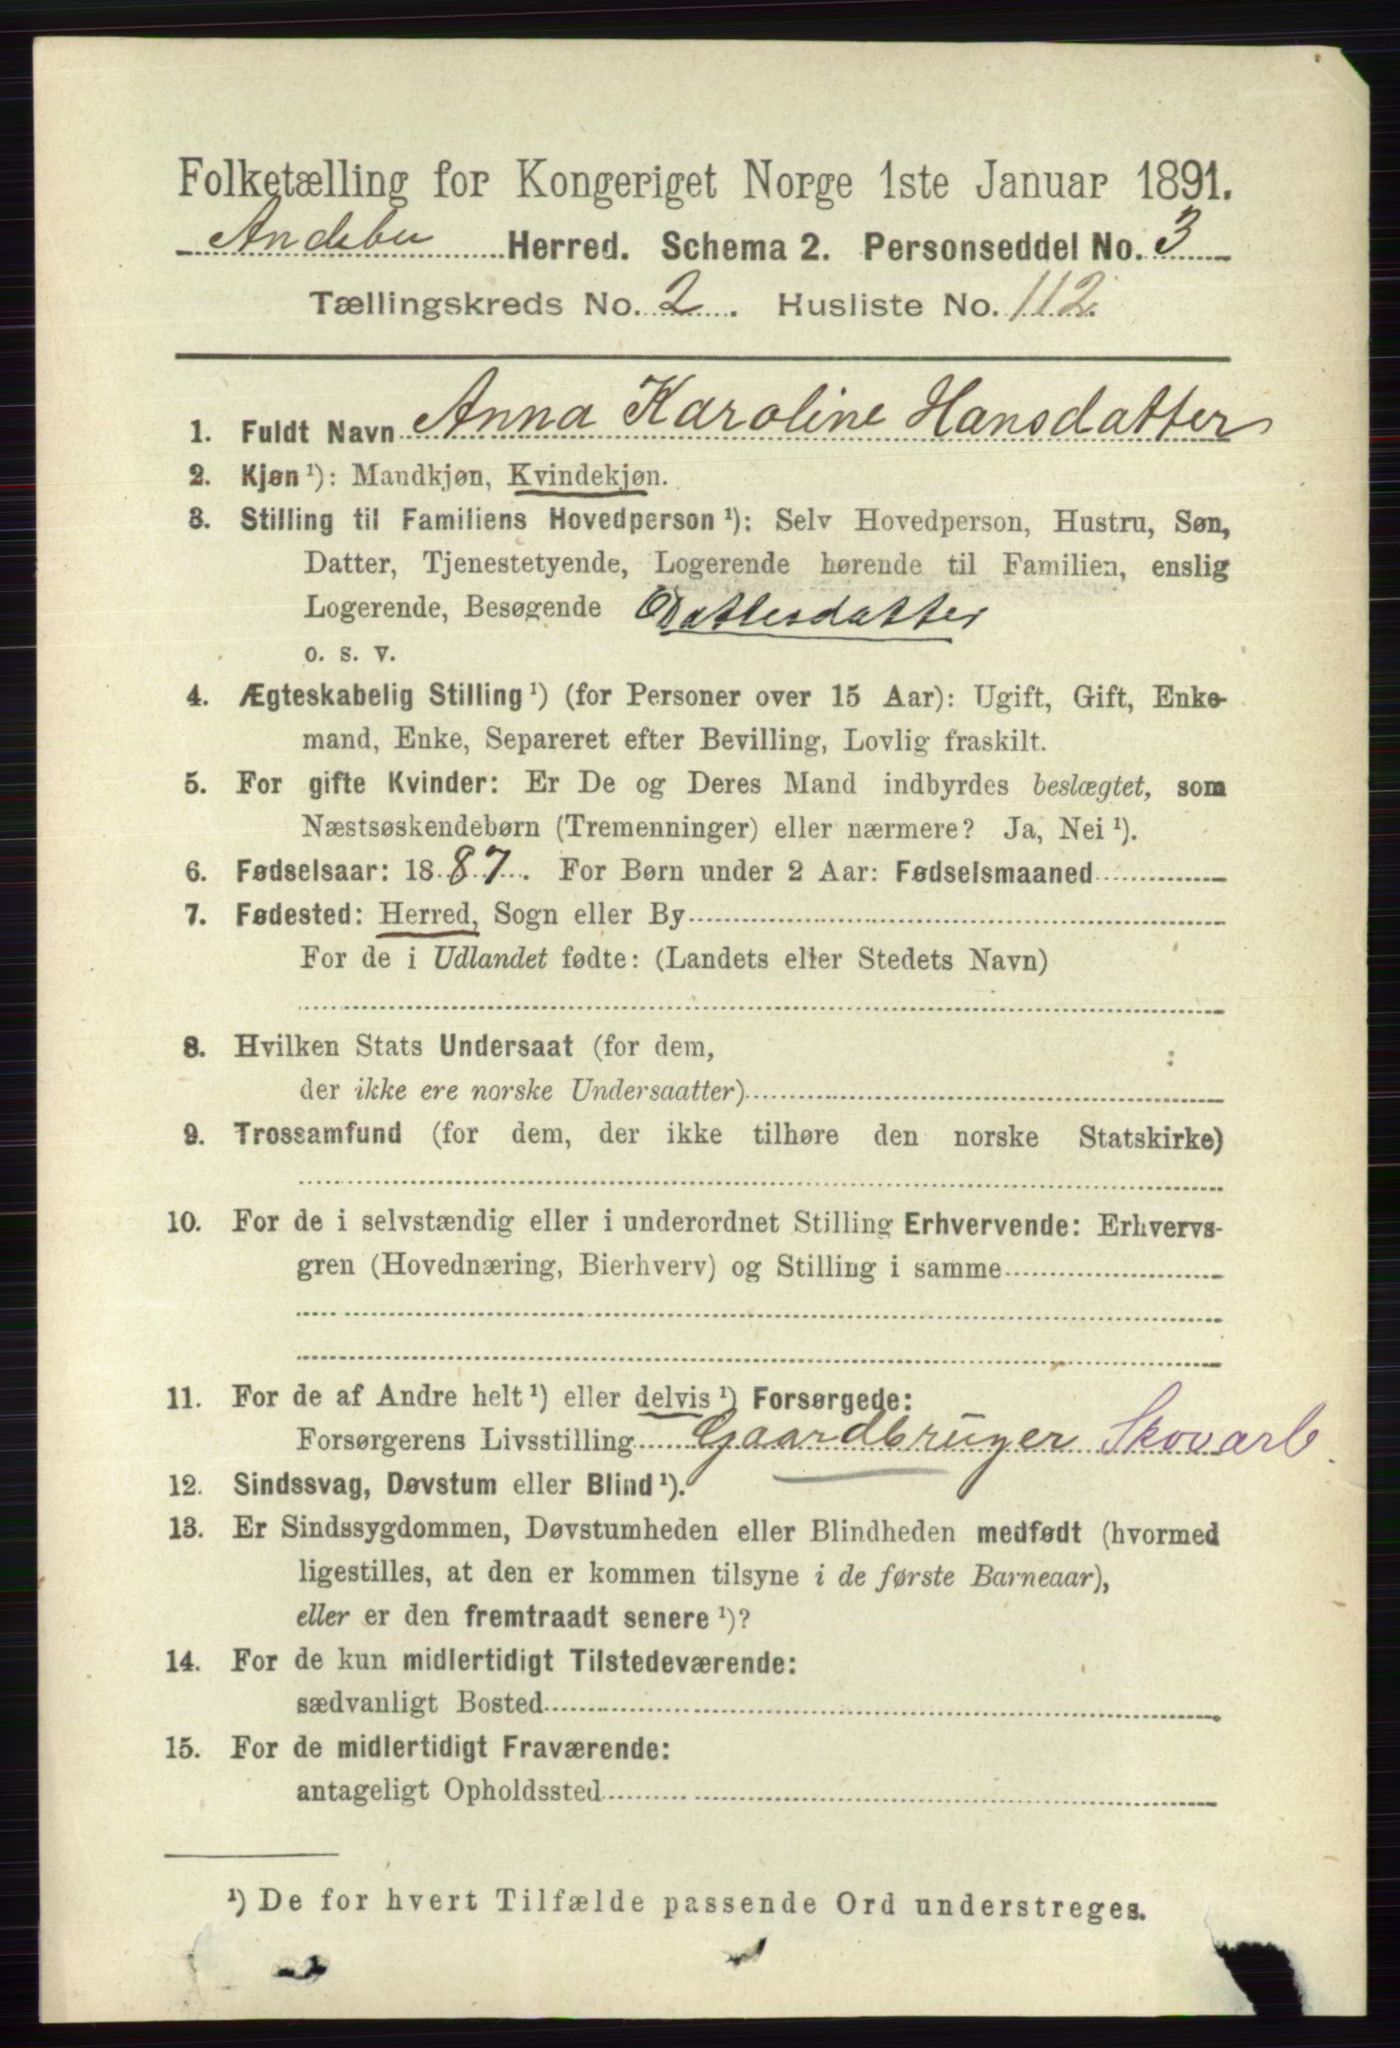 Folketælling for Kongeriget Norge 1ste Januar 1891.
Andebu Herred. Schema 2. Personseddel No. 3
Tællingskreds No. 2. Husliste No. 112.
1. Fuldt Navn Anna Karoline Hansdatter
2. Kjøn ¹): Mandkjøn, Kvindekjøn.
3. Stilling til Familiens Hovedperson ¹): Selv Hovedperson, Hustru, Søn,
Datter, Tjenestetyende, Logerende hørende til Familien, enslig
Logerende, Besøgende Dattesdatter
o. s. v.
4. Ægteskabelig Stilling ¹) (for Personer over 15 Aar): Ugift, Gift, Enke-
mand, Enke, Separeret efter Bevilling, Lovlig fraskilt.
5. For gifte Kvinder: Er De og Deres Mand indbyrdes beslægtet, som
Næstsøskendebørn (Tremenninger) eller nærmere? Ja, Nei ¹).
6. Fødselsaar: 1887. For Børn under 2 Aar: Fødselsmaaned
7. Fødested: Herred, Sogn eller By
For de i Udlandet fødte: (Landets eller Stedets Navn)
8. Hvilken Stats Undersaat (for dem,
der ikke ere norske Undersaatter)
9. Trossamfund (for dem, der ikke tilhøre den norske Statskirke)
10. For de i selvstændig eller i underordnet Stilling Erhvervende: Erhvervs-
gren (Hovednæring, Bierhverv) og Stilling i samme
11. For de af Andre helt ¹) eller delvis ¹) Forsørgede:
Forsørgerens Livsstilling Gaardbruger Skovarb.
12. Sindssvag, Døvstum eller Blind ¹).
13. Er Sindssygdommen, Døvstumheden eller Blindheden medfødt (hvormed
ligestilles, at den er kommen tilsyne i de første Barneaar),
eller er den fremtraadt senere ¹)?
14. For de kun midlertidigt Tilstedeværende:
sædvanligt Bosted
15. For de midlertidigt Fraværende:
antageligt Opholdssted
¹) De for hvert Tilfælde passende Ord understreges.